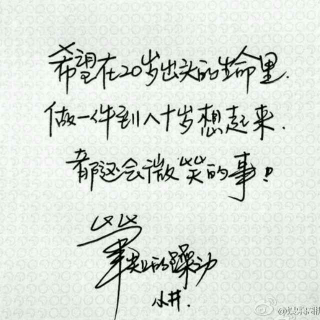 希望在20岁出头的生命里.
做一件到八十岁想起来.
都还会微笑的事!
毕业的躁动
小井.